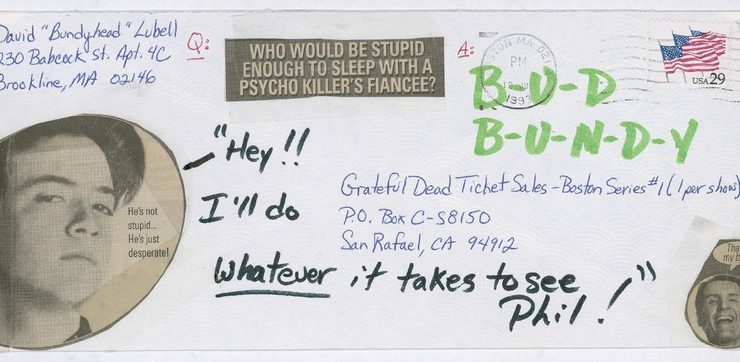 David "Bundyhead" Lubell
230 Babcock St. Apt. 4C
Brookline, MA 02146
Q:
WHO WOULD BE STUPID
ENOUGH TO SLEEP WITH A
PSYCHO KILLER'S FIANCEE?
A:
B-U-D
B-U-N-D-Y
MA 021
PM
1993
USA 29
He's not
stupid...
He's just
desperate!
"Hey!!
I'll do
whatever it takes to see
Phil!"
Grateful Dead Ticket Sales - Boston Series #1 (1 per show)
P.O. Box C-S8150
San Rafael, CA 94912
my b